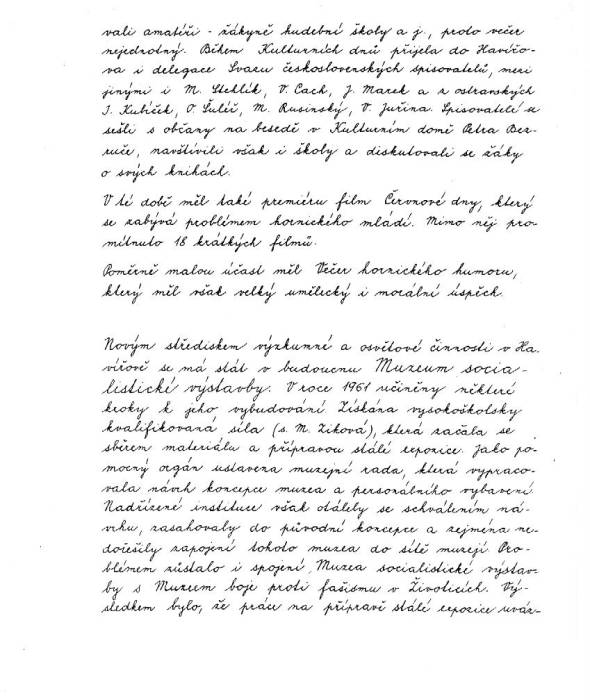 vali amatéři - žákyně hudební školy a j., proto večer
nejednotný. Během Kulturních dnů přijela do Havířo-
va i delegace Svazu československých spisovatelů, mezi
jinými i M. Stehlík, V. Cach, J. Marek a z ostravských
I. Kubíček, O. Šuléř, M. Rusinský, V. Juřina. Spisovatelé se
sešli s občany na besedě v Kulturním domě Petra Bez-
ruče, navštívili však i školy a diskutovali se žáky
o svých knihách.
V té době měl také premiéru film Červnové dny, který
se zabývá problémem hornického mládí. Mimo něj pro-
mítnuto 18 krátkých filmů.
Poměrně malou účast měl Večer hornického humoru,
který měl však velký umělecký i morální úspěch.
Novým střediskem výzkumné a osvětové činnosti v Ha-
vířově se má stát v budoucnu Muzeum socia-
listické výstavby. V roce 1961 učiněny některé
kroky k jeho vybudování. Získána vysokoškolsky
kvalifikovaná síla (s. M. Ziková), která začala se
sběrem materiálu a přípravou stálé expozice. Jako po-
mocný orgán ustavena muzejní rada, která vypraco-
vala návrh koncepce muzea a personálního vybavení.
Nadřízené instituce však otálely se schválením ná-
vrhu, zasahovaly do původní koncepce a zejména ne-
dořešily zapojení tohoto muzea do sítě muzejí. Pro-
blémem zůstalo i spojení Muzea socialistické výstav-
by s Muzeem boje proti fašismu v Životicích. Vý-
sledkem bylo, že práce na přípravě stálé expozice uváz-